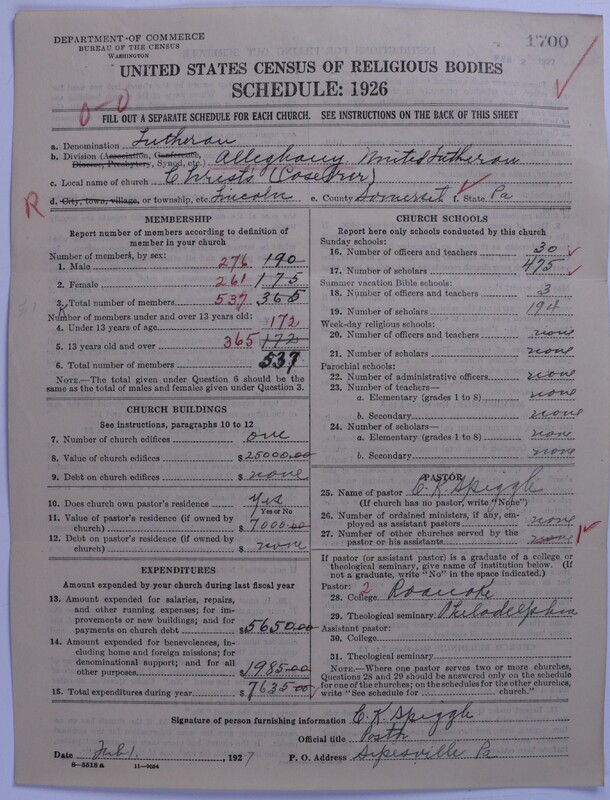 DEPARTMENT OF COMMERCE
BUREAU OF THE CENSUS
WASHINGTON
1700
UNITED STATES CENSUS OF RELIGIOUS BODIES
SCHEDULE: 1926
0-0
FILL OUT A SEPARATE SCHEDULE FOR EACH CHURCH. SEE INSTRUCTIONS ON THE BACK OF THIS SHEET
a. Denomination Lutheran
b. Division (Association, Conference, Diocese, Presbytery, Synod, etc.) Alleghany United Lutheran
c. Local name of church Christ's (Casebeer)
R d. City, town, village, or township, etc. Lincoln e. County Somerset f. State Pa
MEMBERSHIP
Report number of members according to definition of member in your church
Number of members, by sex:
1. Male 276 190
2. Female 261 175
3. Total number of members 537 365
Number of members under and over 13 years old:
4. Under 13 years of age 172
5. 13 years old and over 365 172
6. Total number of members 537
NOTE.—The total given under Question 6 should be the same as the total of males and females given under Question 3.
CHURCH BUILDINGS
See instructions, paragraphs 10 to 12
7. Number of church edifices one
8. Value of church edifices $25000.00
9. Debt on church edifices $ none
10. Does church own pastor's residence? Yes
Yes or No
11. Value of pastor's residence (if owned by church) $7000.00
12. Debt on pastor's residence (if owned by church) $ none
EXPENDITURES
Amount expended by your church during last fiscal year
13. Amount expended for salaries, repairs, and other running expenses; for improvements or new buildings; and for payments on church debt $5650.00
14. Amount expended for benevolences, including home and foreign missions; for denominational support; and for all other purposes $1985.00
15. Total expenditures during year $7635.00
CHURCH SCHOOLS
Report here only schools conducted by this church
Sunday schools:
16. Number of officers and teachers 30
17. Number of scholars 475
Summer vacation Bible schools:
18. Number of officers and teachers 3
19. Number of scholars 194
Week-day religious schools:
20. Number of officers and teachers none
21. Number of scholars none
Parochial schools:
22. Number of administrative officers none
23. Number of teachers—
a. Elementary (grades 1 to 8) none
b. Secondary none
24. Number of scholars—
a. Elementary (grades 1 to 8) none
b. Secondary none
PASTOR
25. Name of pastor C. K. Spiggle
(If church has no pastor, write "None")
26. Number of ordained ministers, if any, employed as assistant pastors none
27. Number of other churches served by the pastor or his assistants none 1
If pastor (or assistant pastor) is a graduate of a college or theological seminary, give name of institution below. (If not a graduate, write "No" in the space indicated.)
Pastor: 2
28. College Roanoke
29. Theological seminary Philadelphia
Assistant pastor:
30. College
31. Theological seminary
NOTE.—Where one pastor serves two or more churches, Questions 28 and 29 should be answered only on the schedule for one of the churches; on the schedules for the other churches, write "See schedule for church."
Signature of person furnishing information C. K. Spiggle
Official title Pastor
Date Feb 1, 1927 P. O. Address Sipesville Pa
8-5518a 11-2024